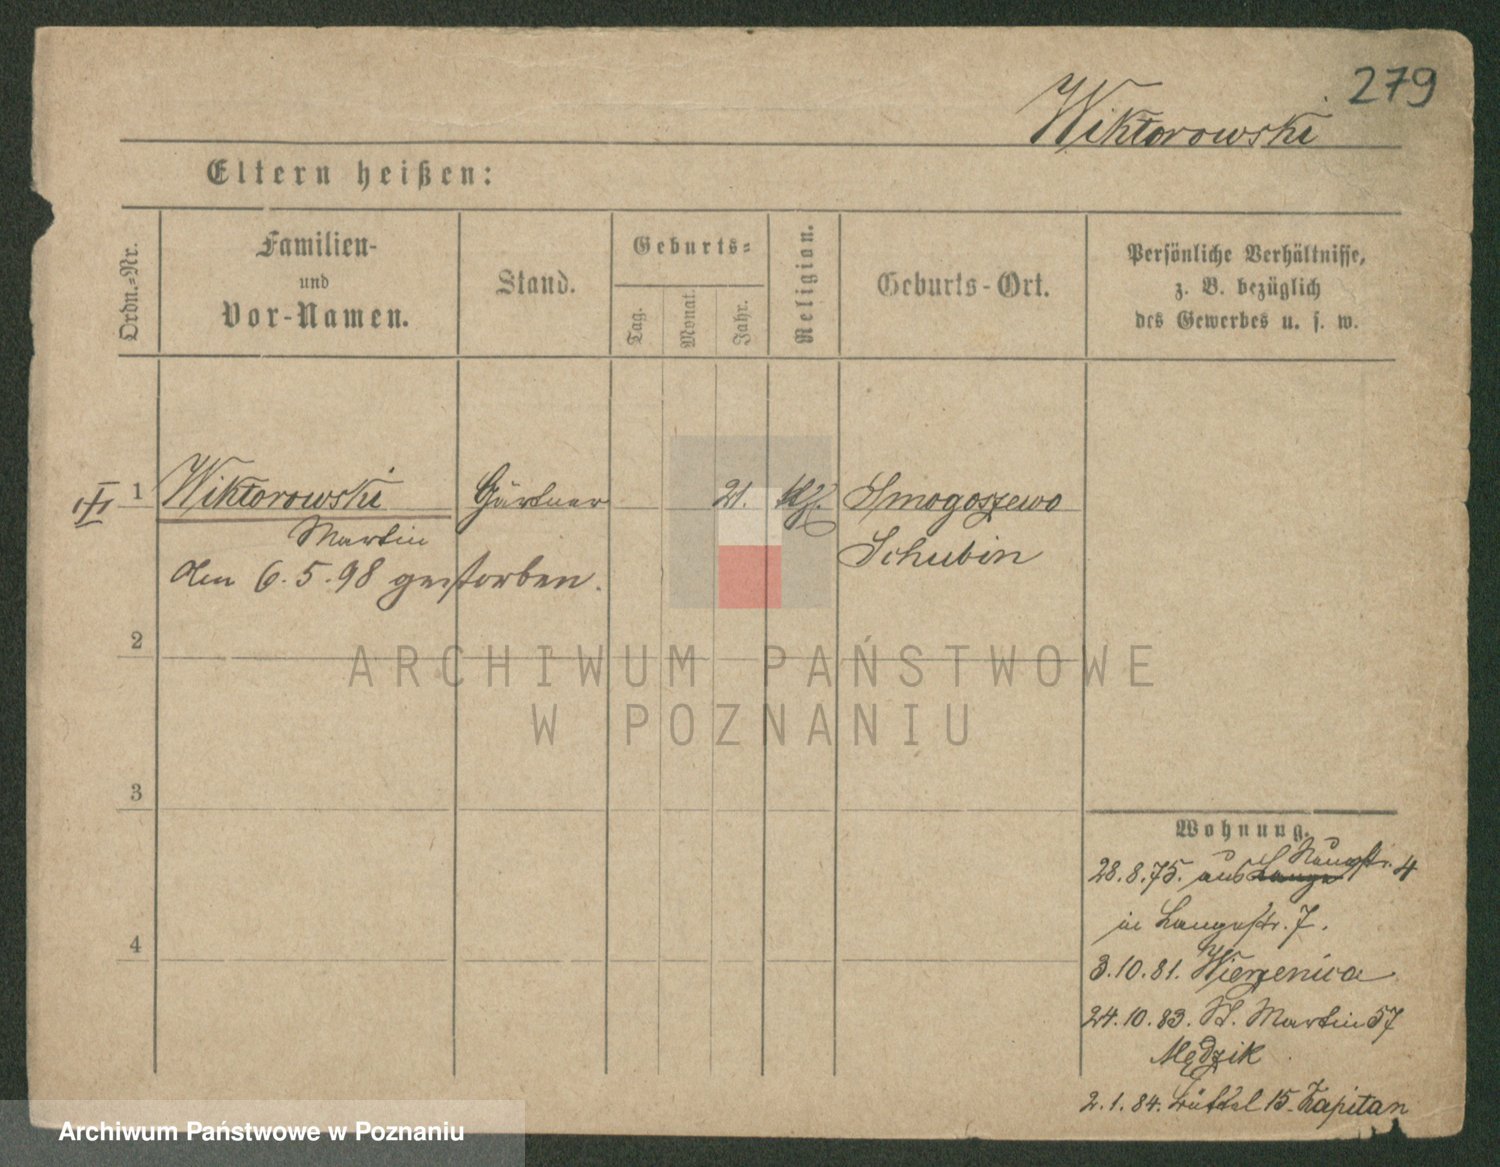 279
Wiktorowski
Eltern heißen:
Ordn.=Nr.
Familien-
und
Vor-Namen.
Stand.
Geburts=
Tag.
Monat.
Jahr.
Religion.
Geburts-Ort.
Persönliche Verhältnisse,
z. B. bezüglich
des Gewerbes u. s. w.
1 Wiktorowski Gärtner 21. Smogoszewo
Martin Schubin
den 6.5.98 gestorben.
2
3
4
Wohnung.
28.8.75. aus 4
in Langestr. 7.
3.10.81. Wierzenica
24.10.83. St. Martin 57
Mędzik
2.1.84. Büttel 15. Kapitan
ARCHIWUM PAŃSTWOWE
W POZNANIU
Archiwum Państwowe w Poznaniu